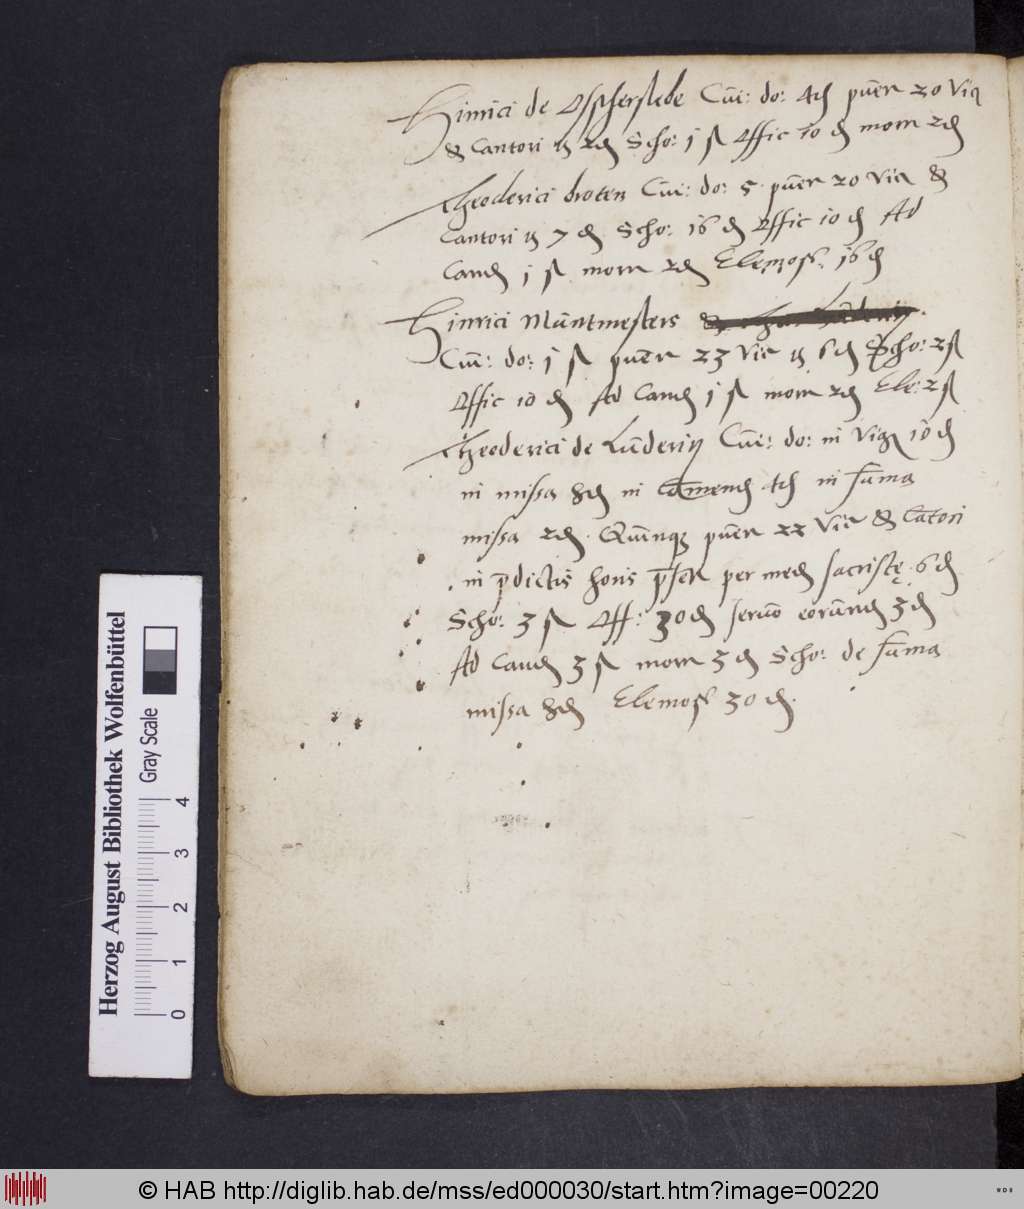 Hinrici de Osscherslebe Cui: do: 4 d puer 20 Vic
& Cantori 2 d Scho: j ß Offic 10 d mom 2 d
Theoderici broten Cui: do: 5 puer 20 Vic &
Cantori 7 d Scho: 16 d Offic 10 d Ad
Cand j ß mom 2 d Elemos: 16 d
Hinrici Muntmesters
Cui: do: j ß puer 23 Vic 6 d Scho: 2 ß
Offic 10 d Ad Cand j ß mom 2 d Ele: 2 ß
Theoderici de Lunderin Cui: do: in Vig 10 d
in missa 8 d in Comend 4 d in suma
missa 2 d. Quinque puer 22 Vic & Cantori
in pdictis horis per med sacriste 6 d
Scho: 3 ß Off: 30 d servo eorund 3 d
Ad Cand 3 ß mom 3 d Scho: de suma
missa 8 d Elemos 30 d.
Herzog August Bibliothek Wolfenbüttel
Gray Scale
0 1 2 3 4
© HAB http://diglib.hab.de/mss/ed000030/start.htm?image=00220